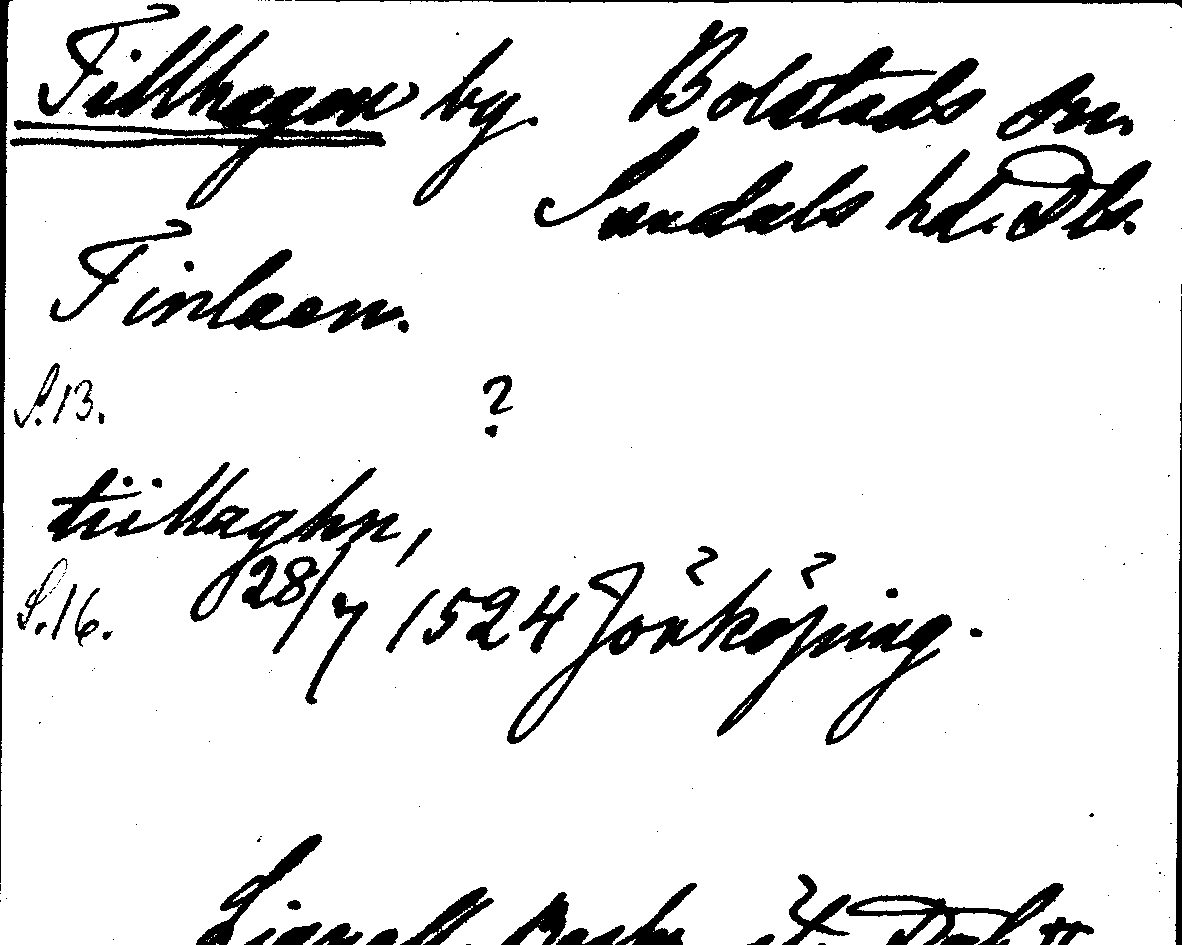 Tillhagen by. Bolstads sn.
Sundals hd. Dls.
Finlaen.
S.13. ?
tiillaghn,
S.16. 28/7 1524 Jönköping.
Lignell,